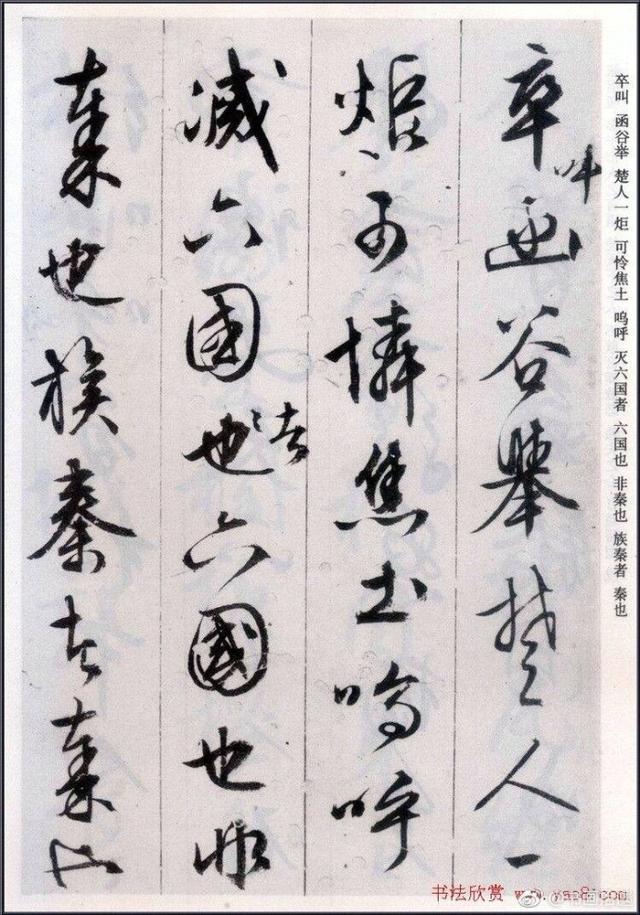 卒叫 函谷举 楚人一炬 可怜焦土 呜呼 灭六国者 六国也 非秦也 族秦者 秦也
卒叫函谷舉楚人一
炬可憐焦土嗚呼
滅六國也者六國也非
秦也族秦者秦也
书法欣赏